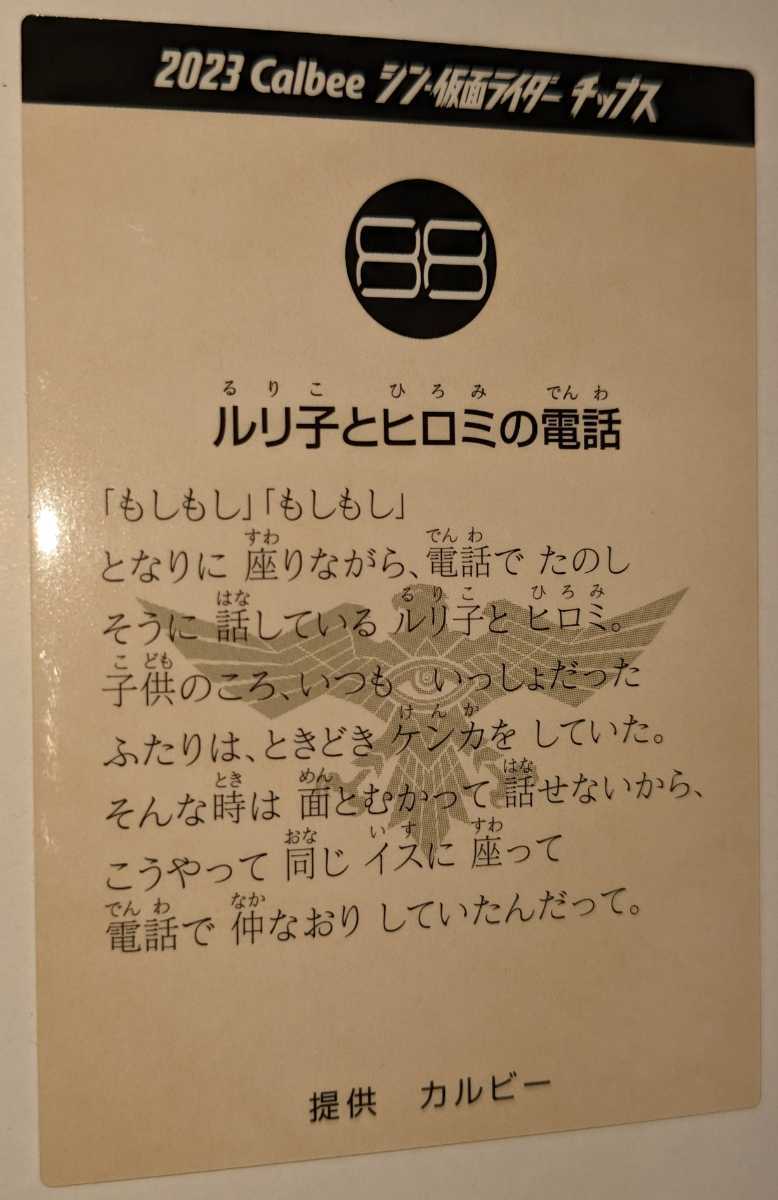 2023 Calbee シン・仮面ライダー チップス
88
るりこ ひろみ でんわ
ルリ子とヒロミの電話
「もしもし」「もしもし」
すわ でんわ
となりに 座りながら、電話で たのし
はな るりこ ひろみ
そうに 話している ルリ子と ヒロミ。
こども
子供のころ、いつも いっしょだった
けんか
ふたりは、ときどき ケンカを していた。
とき めん はな
そんな時は 面とむかって 話せないから、
おな いす すわ
こうやって 同じ イスに 座って
でんわ なか
電話で 仲なおり していたんだって。
提供 カルビー